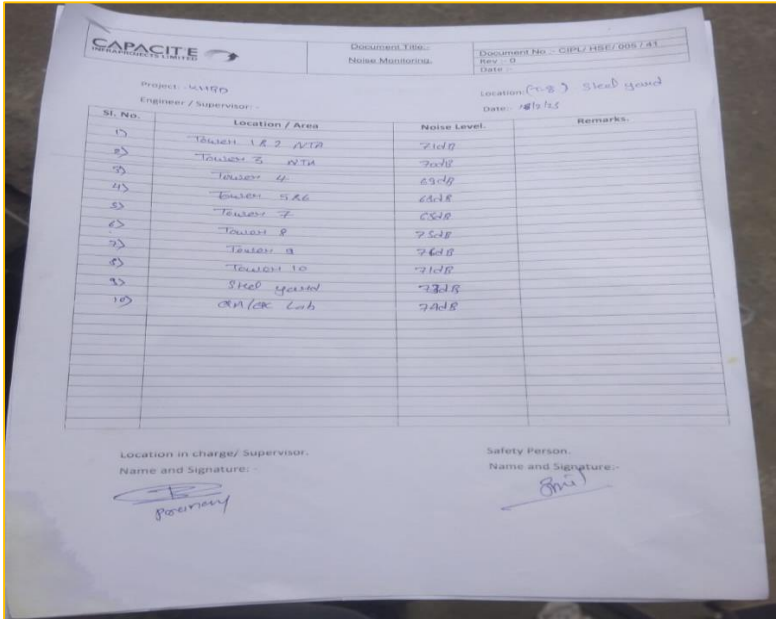 CAPACIT'E
INFRAPROJECTS LIMITED
Document Title:-
Noise Monitoring.
Document No :- CIPL/ HSE/ 005 / 41
Rev :- 0
Date :-
Project:-
Location:- (T-8) Steel yard
Engineer / Supervisor: -
Date:- 18/2/25
Sl. No. Location / Area Noise Level. Remarks.
1) Tower 1 & 2 NTA 71dB
2) Tower 3 NTA 70dB
3) Tower 4 69dB
4) Tower 5&6
5) Tower 7
6) Tower 8 75dB
7) Tower 9 76dB
8) Tower 10 71dB
9) Steel yard 73dB
10) Lab 74dB
Location in charge/ Supervisor.
Name and Signature: -
Safety Person.
Name and Signature:-